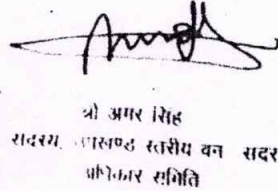 श्री अमर सिंह
सदस्य, उपखण्ड स्तरीय वन सदर
अधिकार समिति